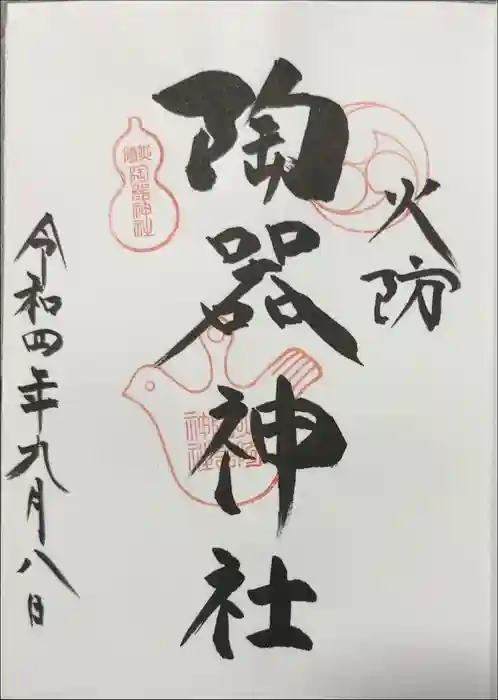 火防
陶器神社
令和四年九月八日
陶器神社